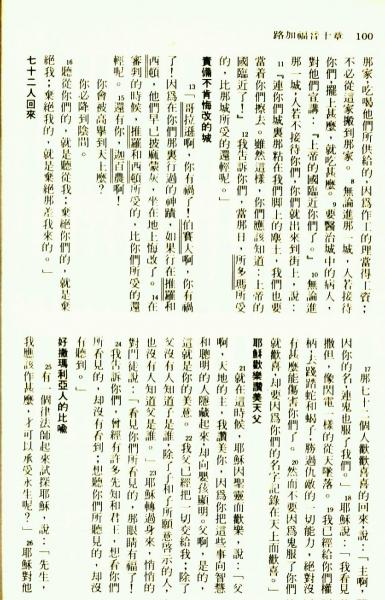 路加福音十章
100
那家,吃喝他們所供給的,因爲作工的理當得工資;
不必從這家搬到那家。 8 無論進那一城,人若接待
你們,擺上甚麼,就吃甚麼。 9 要醫治城中的病人,
對他們宣講:『上帝的國臨近你們了。』 10 無論進
那一城,人若不接待你們,你們就出來到街上,說:
11 『連你們城裏那粘在我們脚上的塵土,我們也要
當着你們擦去。雖然這樣,你們應該知道:上帝的
國臨近了!』 12 我吿訴你們,當那日,所多瑪所受
的,比那城所受的還輕呢。」
責備不肯悔改的城
13 「哥拉遜啊,你有禍了!伯賽大啊,你有禍
了!因爲在你們那裏行過的神蹟,如果行在推羅和
西頓,他們早已披麻蒙灰,坐在地上悔改了。 14 在
審判的時候,推羅和西頓所受的,比你們所受的還
輕呢。 15 還有你,迦百農啊!
你會被高舉到天上麼?
你必降到陰間。
16 聽從你們的,就是聽從我;棄絕你們的,就是棄
絕我;棄絕我的,就是棄絕那差我來的。」
七十二人回來
17 那七十二個人歡歡喜喜的回來,說:「主啊,
因你的名,連鬼也服了我們。」 18 耶穌說:「我看見
撒但,像閃電一樣的從天墜落。 19 我已經給你們權
柄,去踐踏蛇和蝎子,勝過仇敵的一切能力,絕對沒
有甚麼能傷害你們了。 20 然而不要因爲鬼服了你們
就歡喜,却要因爲你們的名字記錄在天上而歡喜。」
耶穌歡樂讚美天父
21 就在這時候,耶穌因聖靈而歡樂,說:「父
啊,天地的主,我讚美你,因爲你把這些事向智慧
和聰明的人隱藏起來,却向嬰孩顯明。父啊,是的,
這就是你的美意。 22 我父已經把一切交給我;除了
父沒有人知道子是誰,除了子和子所願意啓示的人,
也沒有人知道父是誰。」 23 耶穌轉過身來,悄悄的
對門徒說:「看見你們所看見的,那眼睛有福了!
24 我吿訴你們,曾經有許多先知和君王,想看你們
所看見的,却沒有看到;想聽你們所聽見的,却沒
有聽到。」
好撒瑪利亞人的比喻
25 有一個律法師起來試探耶穌,說:「先生,
我應該作甚麼,才可以承受永生呢?」 26 耶穌對他